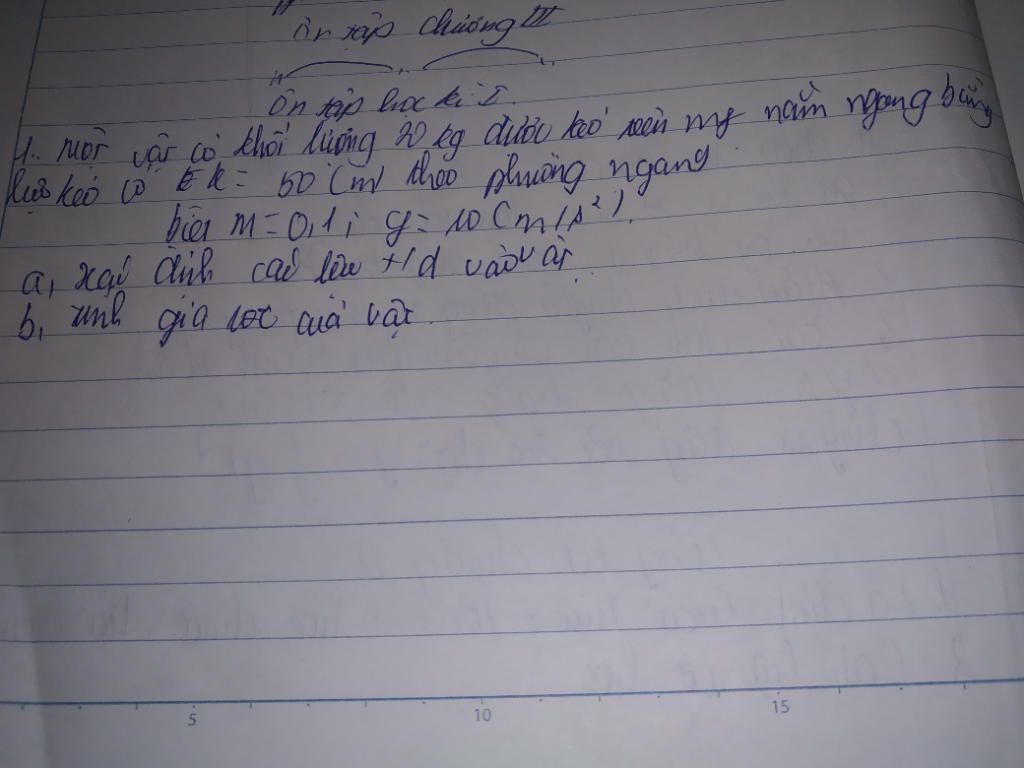 Ôn tập chương III
Ôn tập học kì I.
1. Một vật có khối lượng 20 kg được kéo trên mp nằm ngang bằng
lực kéo có Fk = 50 (m) theo phương ngang
biết M = 0,1; g = 10 (m/s²).
a, xác định các lực t/d vào vật
b, tính gia tốc của vật.
5 10 15